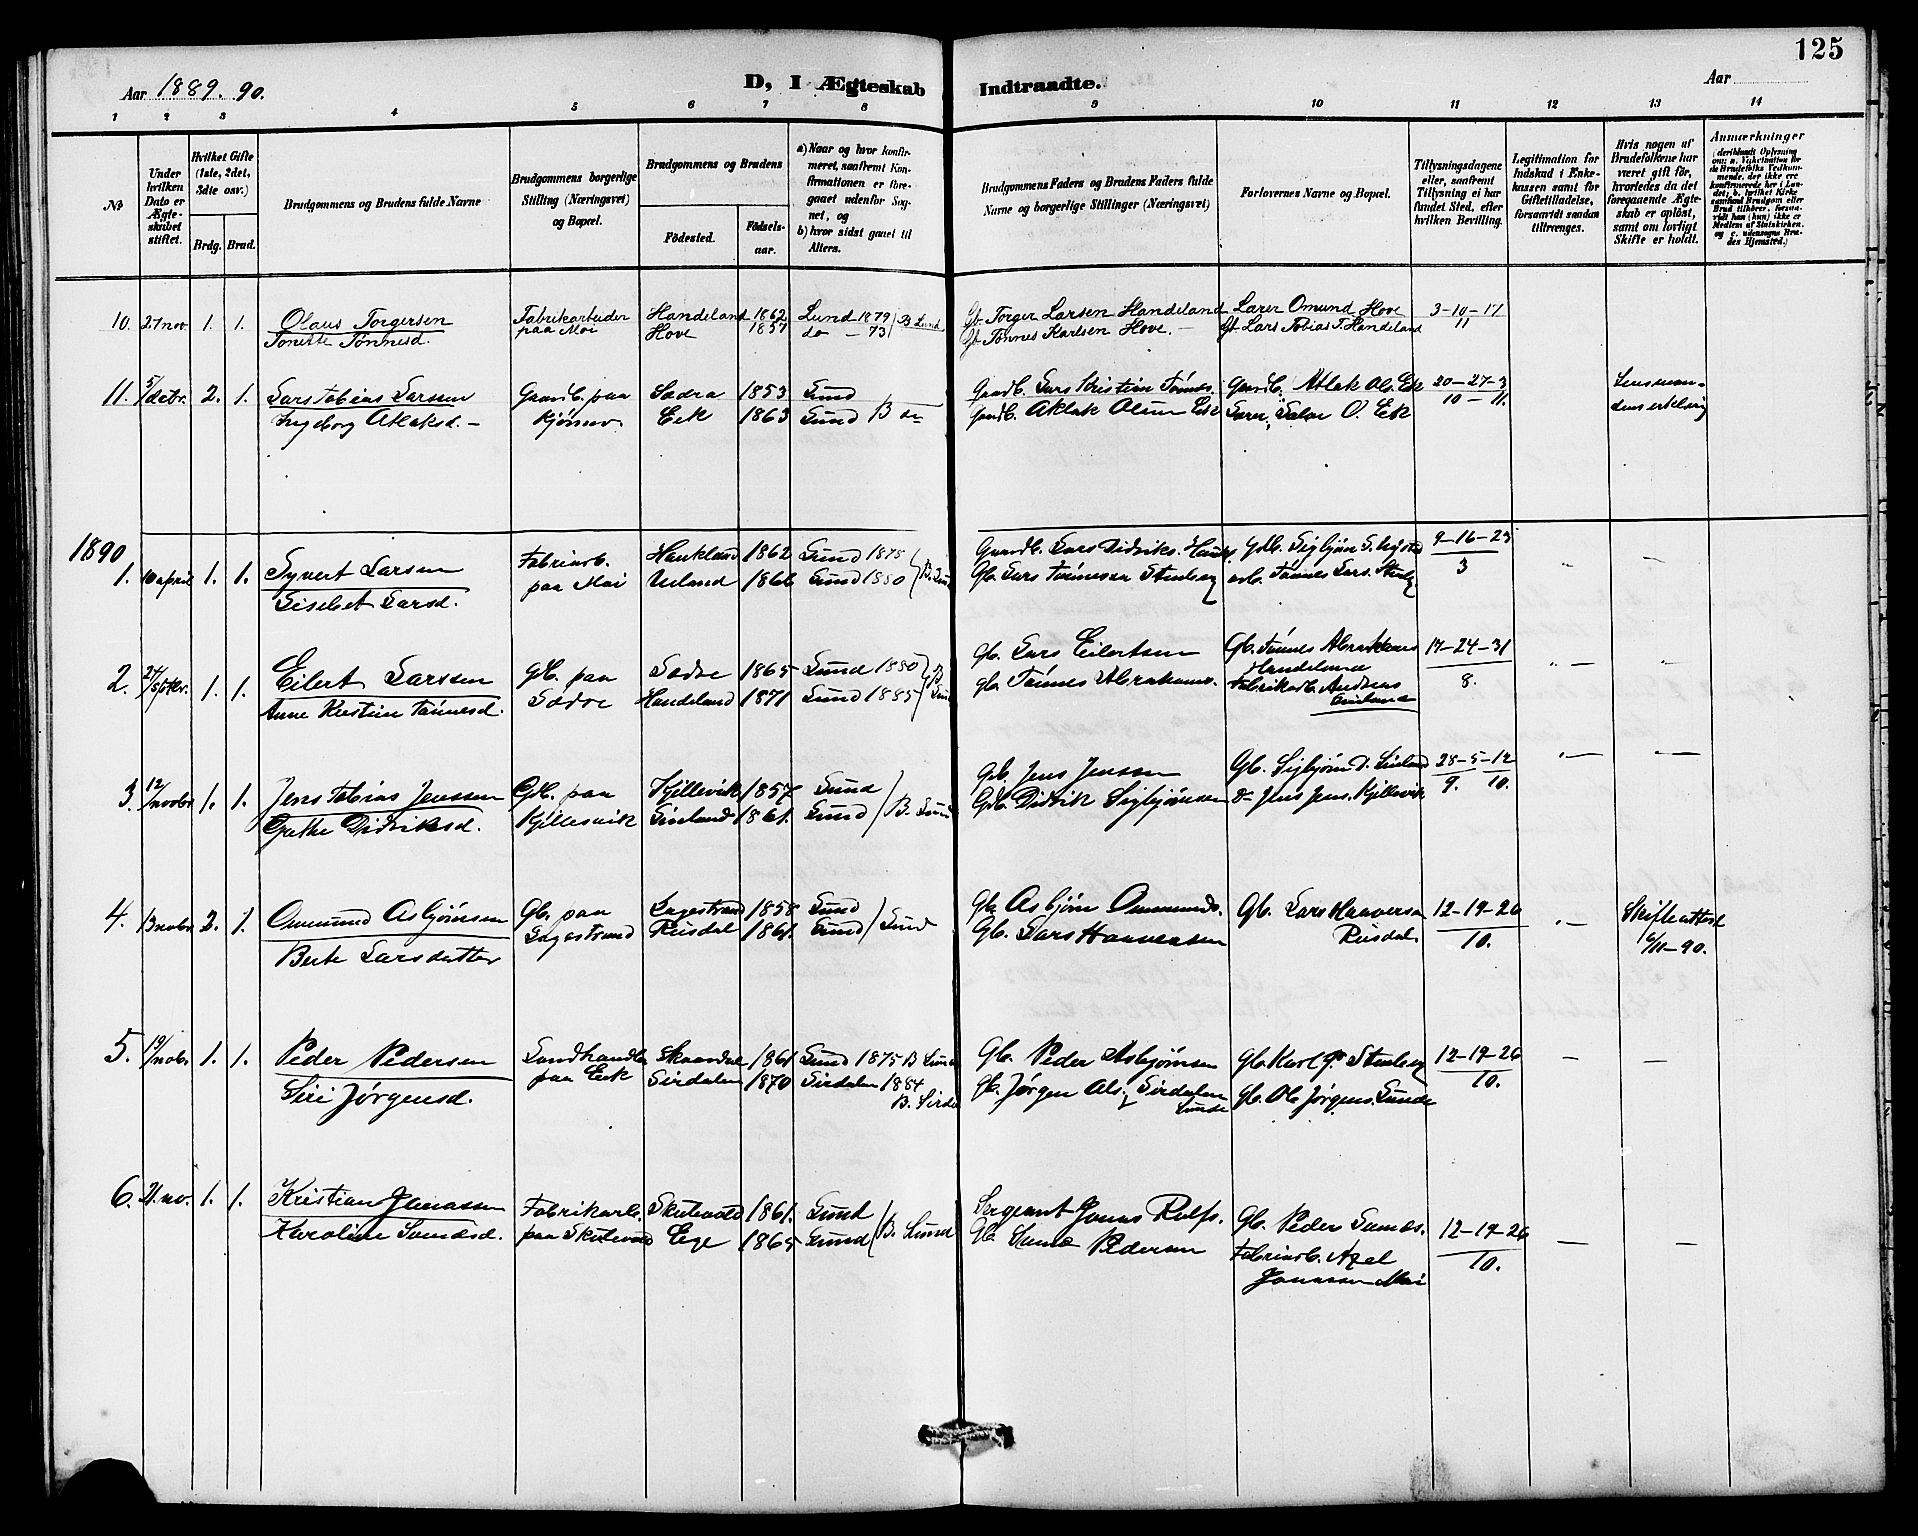 125
Aar 1889. 90.
D, I Ægteskab Indtraadte.
Aar
1 2 3 4 5 6 7 8 9 10 11 12 13 14
№
Under hvilken Dato er Ægteskabet stiftet.
Hvilket Gifte (1ste, 2det, 3die osv.)
Brdg. Brud.
Brudgommens og Brudens fulde Navne
Brudgommens borgerlige Stilling (Næringsvei) og Bopæl.
Brudgommens og Brudens
Födested.
Födselsaar.
a) Naar og hvor konfirmeret, saafremt Konfirmationen er foregaaet udenfor Sognet, og
b) hvor sidst gaaet til Alters.
Brudgommens Faders og Brudens Faders fulde Navne og borgerlige Stillinger (Næringsvei)
Forlovernes Navne og Bopæl.
Tillysningsdagene eller, saafremt Tillysning ei har fundet Sted, efter hvilken Bevilling.
Legitimation for Indskud i Enkekassen samt for Giftetilladelse, forsaavidt saadan tiltrænges.
Hvis nogen af Brudefolkene har været gift før, hvorledes da det foregaaende Ægteskab er oplöst, samt om lovligt Skifte er holdt.
Anmærkninger
10. 27 nov. 1. 1. Olaus Torgersen Fabrikarbeider Handeland 1862 Lund 1879 B Lund Gb Torger Larsen Handeland Lærer Omund Hove 3-10-17
Tonette Tønnesd. paa Moi Hove 1857 do - 73 Gb Tønnes Karlsen Hove. - Gb. Lars Tobias T. Handeland 11
11. 5/decbr. 2. 1. Lars Tobias Larssen Gaardb. paa Sædra 1853 Lund Gaardb. Lars Kristian Tønnes. Gaardb. Atlak Ols. Eek 20-27-3 Lensman-
Ingeborg Atlaksd. - Eek 1863 Lund B do Gaardb. Aklak Olsen Eek O. Eek 10-11. dens erklæring
1890
1. 10 april 1. 1. Syvert Larsen Fabrikarb. Haukland 1862 Lund 1878 B. Lund Gaardb. Lars Didriks. 9-16-23 " "
Lisebet Larsd. paa Moi Ueland 1866 Lund 1880 Gb. Lars Tønnessen Stenberg Tønnes Lars. Stenbg 3
2. 24/ 1. 1. Eilert Larssen Gb. paa Sædre 1865 Lund 1880 B Lund Gb. Lars Eilertsen Gb. Tønnes Abrahams 17-24-31 "- "-
Anne Kristine Tønnesd. Sædre Handeland 1871 Lund 1885 Gb. Tønnes Abrahams. Handeland 8.
Fabrikarb. Andreas
3. 12/novbr 1. 1. Jens Tobias Jenssen Gb. paa Kjellevik 1857 Lund B. Lund Gb. Jens Jenssen Gb. Sigbjørn D. 28-5-12 "- "-
Didriksd. Kjellesvik 1861. Lund Gb. Didrik Sigbjørnsen Do Jens Jens. Kjellevik 9. 10.
4. 13 novbr 2. 1. Ommund Asbjørnsen Gb. paa Lagestrand 1858 Lund Lund Gb. Asbjørn Ommunds. Gb. Lars Haaversen 12-19-26 "- Skifteattest
Berte Larsdatter Lagestrand Rusdal 1861. Lund Gb. Lars Haaversen Rusdal 10. 6/11-90.
5. 19/nobr 1. 1. Peder Pedersen Landhandler Skaardal 1861 Lund 1875 B Lund Gb. Peder Asbjørnsen Gb. Karl Stenberg 12-19-26 - -
Siri Jørgensd. paa Eek Sirdalen 1870 Sirdalen 1884 Gb. Jørgen Ols. Sirdalen Gb. Ole Jørgens. Sunde 10.
B. Sirdal Sunde
6. 21. nov. 1. 1. Kristian Jonassen Fabrikarb. Skutevold 1861. Lund B. Lund Sergeant Jonas Rolfs. Gb. Peder Samds. 12-19-26 - -
Karoline Samdsd. paa Skutevold Ege 1865 Lund Gb. Pedersen Fabrikarb. Axel 10.
Jonassen Moi